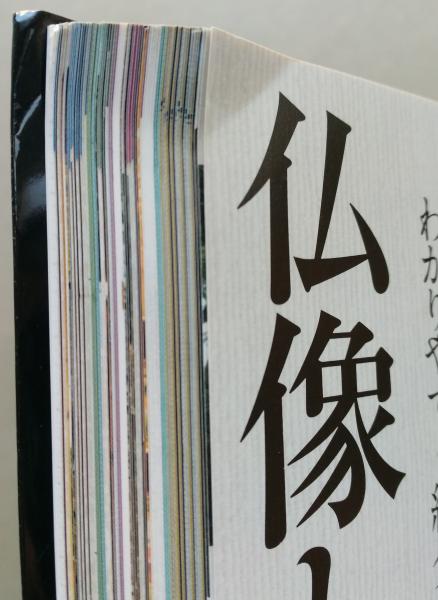 仏像
わかりやす